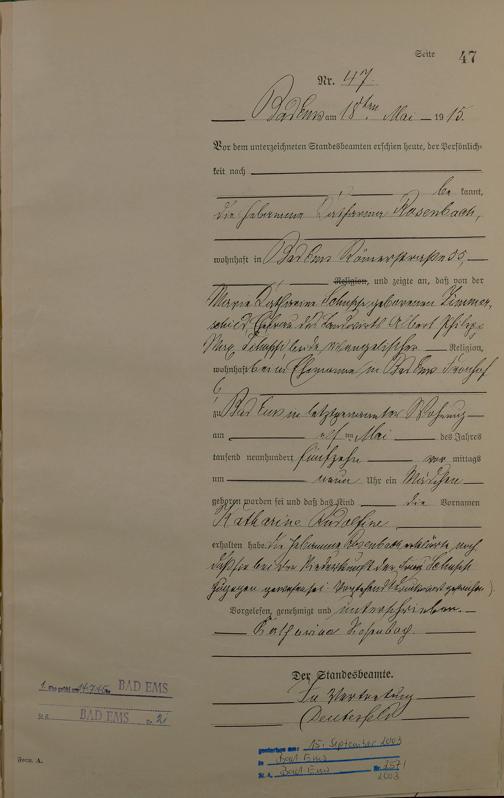 Seite 47
Nr. 47.
Bad Ems am 18ten Mai 1915.
Vor dem unterzeichneten Standesbeamten erschien heute, der Persönlich-
keit nach
be kannt,
die Hebamme Katharina Rosenbach,
wohnhaft in Bad Ems Römerstrasse 55,
Religion, und zeigte an, daß von der
Marie Katharine Schupp geborenen Zimmer-
schied, Ehefrau des Landwirts Albert Philipp
Schupp beide evangelischer Religion,
wohnhaft bei ihrem Ehemanne in Bad Ems Fronhof
6
zu Bad Ems in letztgenannter Wohnung
am elf ten Mai des Jahres
tausend neunhundert fünfzehn vor mittags
um neun Uhr ein Mädchen
geboren worden sei und daß das Kind die Vornamen
Katharine Rudolfine
erhalten habe. Die Hebamme Rosenbach erklärte noch
daß sie bei der Niederkunft der Frau Schupp
zugegen gewesen sei.
Vorgelesen, genehmigt und unterschrieben.
Katharina Rosenbach.
Der Standesbeamte.
In Vertretung
1. BAD EMS
St. A. BAD EMS Nr. 21
gestorben am: 15. September 2003
in Bad Ems
St. A. Bad Ems Nr. 257/
2003
Form. A.